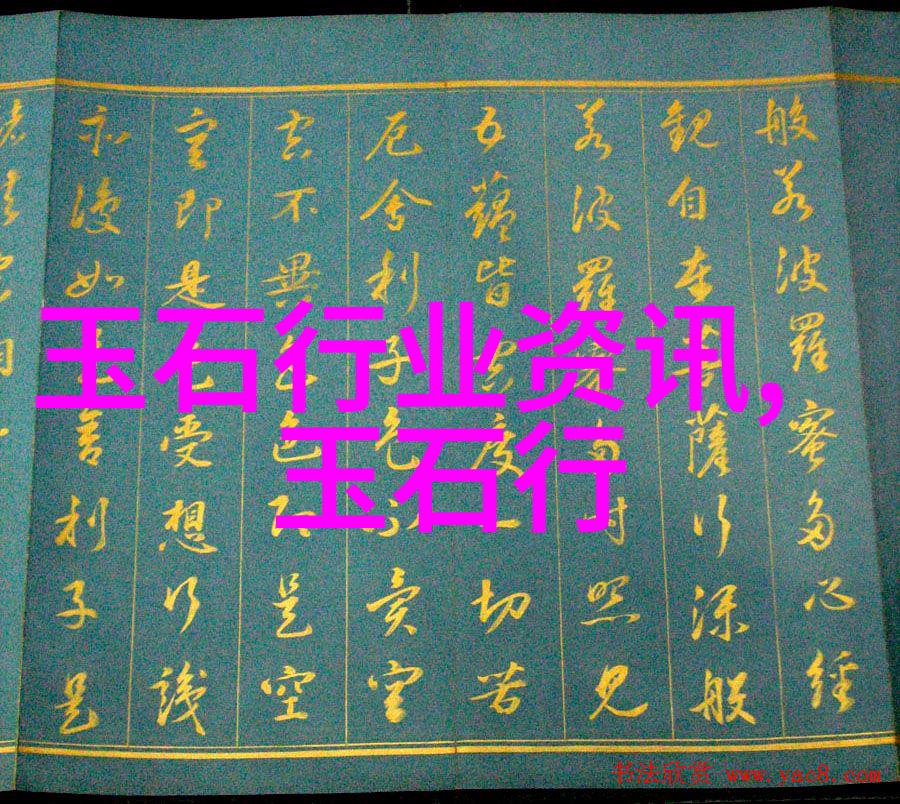 玉石行业资讯,
玉石行
般若波羅蜜多心經
觀自在菩薩行深般
若波羅蜜多時照見
五蘊皆空度一切苦
厄舍利子色不異空
空不異色色即是空
空即是色受想行識
亦復如是舍利子是
书法欣赏 www.yac8.com